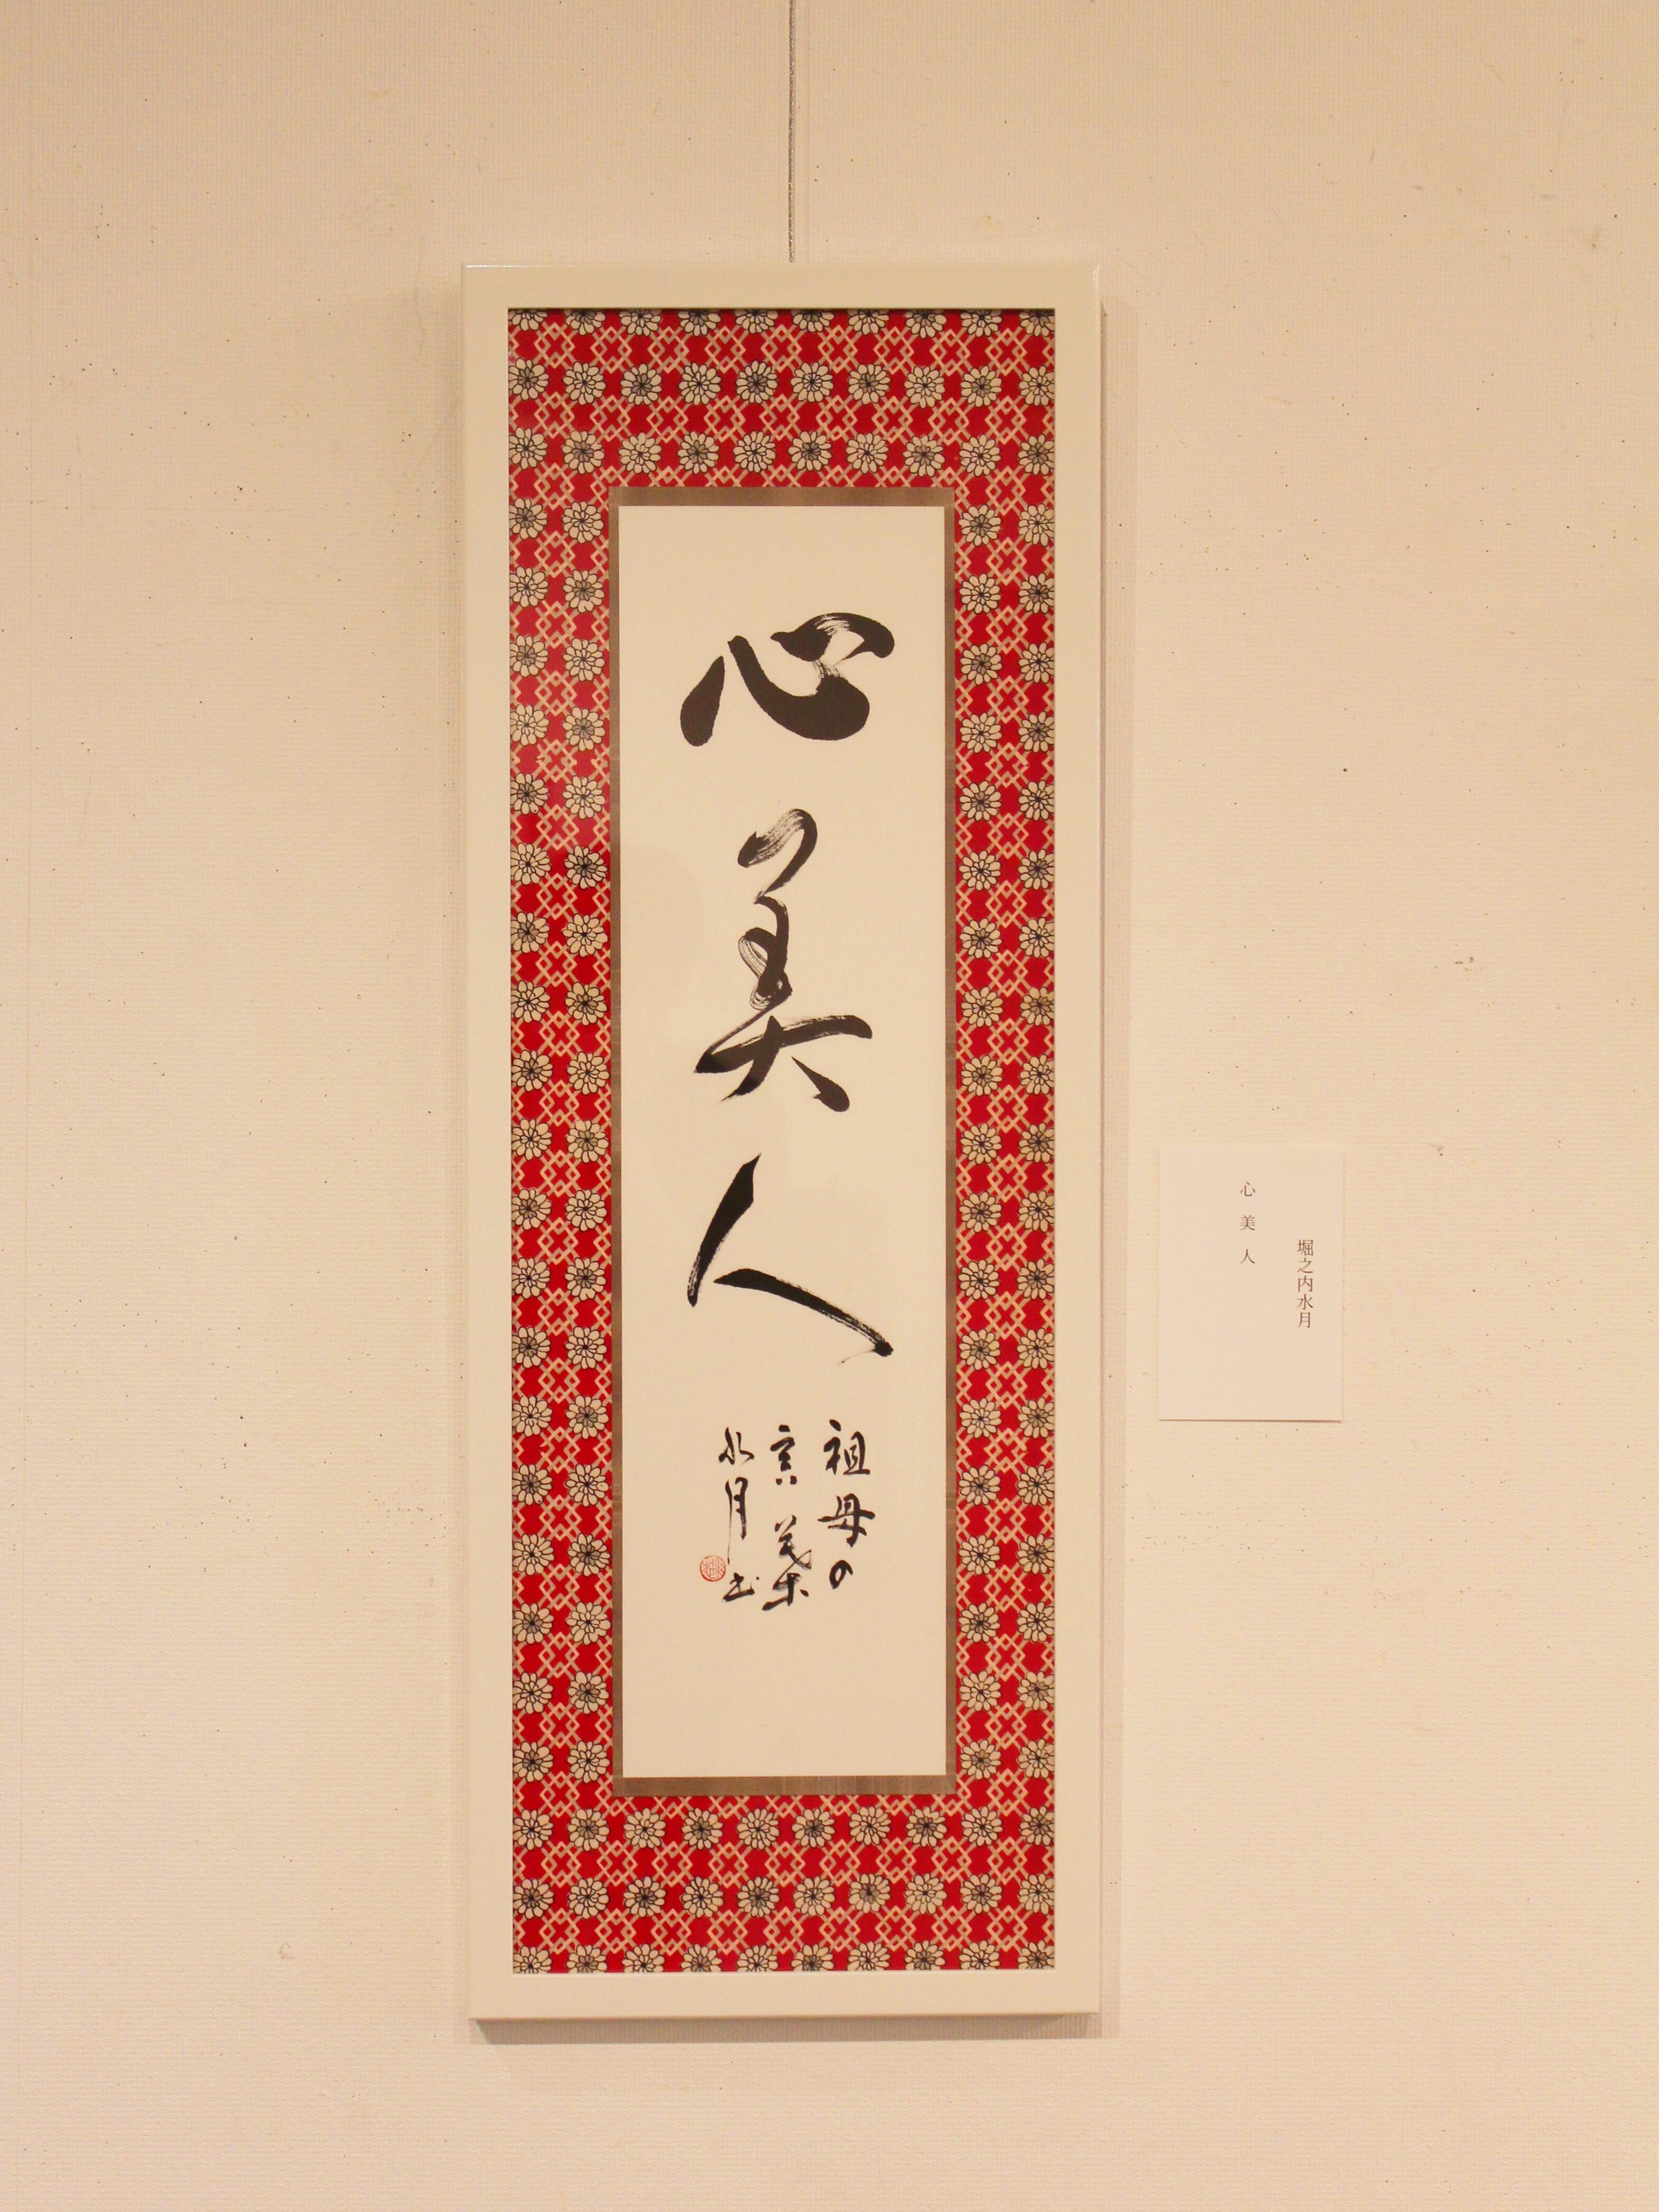 心美人
祖母の
言葉
水月書
堀之内水月
心美人